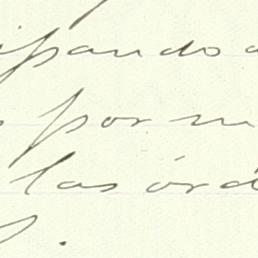 ipando
por m
las órd